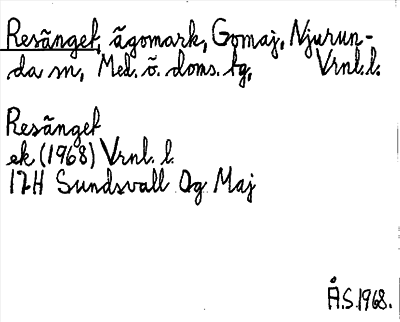 Resänget, ägomark, Gomaj, Njurun-
da sn, Med. ö. doms. tg, Vrnl.l.
Resänget
ek (1968) Vrnl. l.
17H Sundsvall 0g Maj
Å.S.1968.